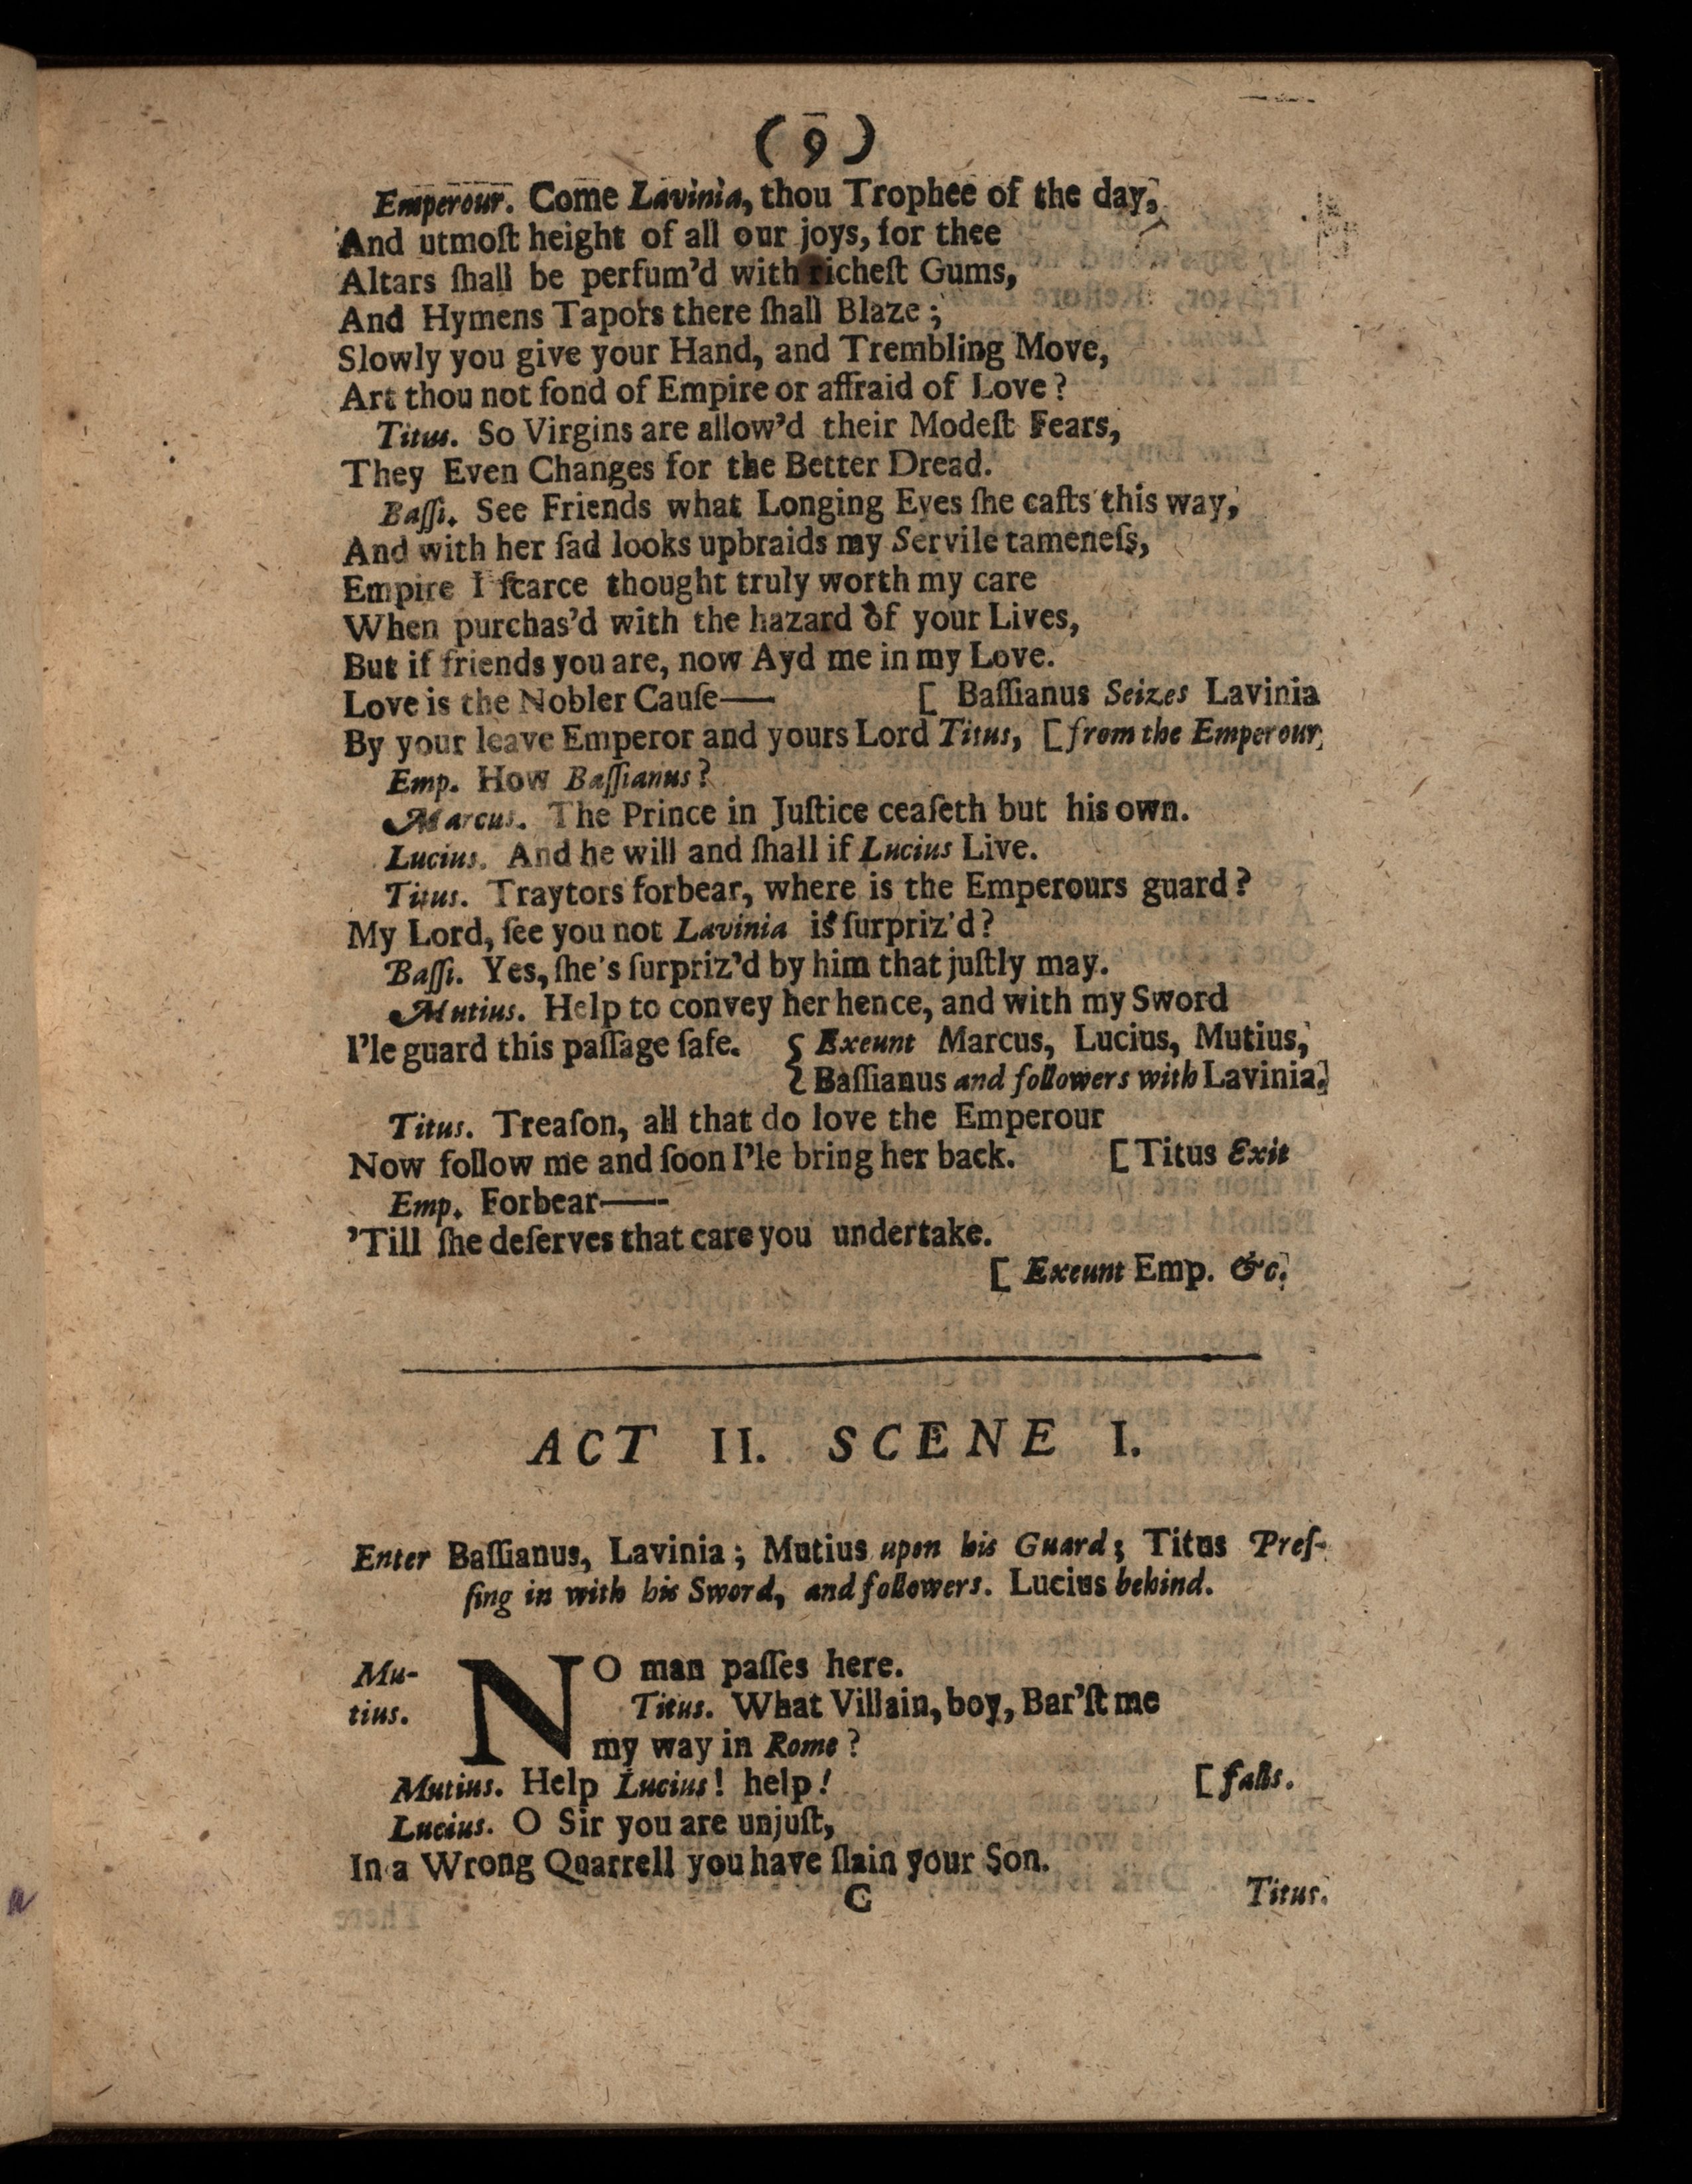 ( 9 )
Emperour. Come Lavinia, thou Trophee of the day,
And utmoſt height of all our joys, for thee
Altars ſhall be perfum'd with richeſt Gums,
And Hymens Tapors there ſhall Blaze;
Slowly you give your Hand, and Trembling Move,
Art thou not fond of Empire or affraid of Love?
Titus. So Virgins are allow'd their Modeſt Fears,
They Even Changes for the Better Dread.
Baſſi. See Friends what Longing Eyes ſhe caſts this way,
And with her ſad looks upbraids my Servile tameneſs,
Empire I ſcarce thought truly worth my care
When purchas'd with the hazard of your Lives,
But if friends you are, now Ayd me in my Love.
Love is the Nobler Cauſe—— [ Baſſianus Seizes Lavinia
By your leave Emperor and yours Lord Titus, [ from the Emperour
Emp. How Baſſianus?
Marcus. The Prince in Juſtice ceaſeth but his own.
Lucius. And he will and ſhall if Lucius Live.
Titus. Traytors forbear, where is the Emperours guard?
My Lord, ſee you not Lavinia is ſurpriz'd?
Baſſi. Yes, ſhe's ſurpriz'd by him that juſtly may.
Mutius. Help to convey her hence, and with my Sword
I'le guard this paſſage ſafe. { Exeunt Marcus, Lucius, Mutius,
Baſſianus and followers with Lavinia.]
Titus. Treaſon, all that do love the Emperour
Now follow me and ſoon I'le bring her back. [ Titus Exit
Emp. Forbear——-
'Till ſhe deſerves that care you undertake.
[ Exeunt Emp. &c.
ACT II. SCENE I.
Enter Baſſianus, Lavinia; Mutius upon his Guard; Titus Preſ-
ſing in with his Sword, and followers. Lucius behind.
Mu-
tius. NO man paſſes here.
Titus. What Villain, boy, Bar'ſt me
my way in Rome?
Mutius. Help Lucius! help! [ falls.
Lucius. O Sir you are unjuſt,
In a Wrong Quarrell you have ſlain your Son.
C Titus.